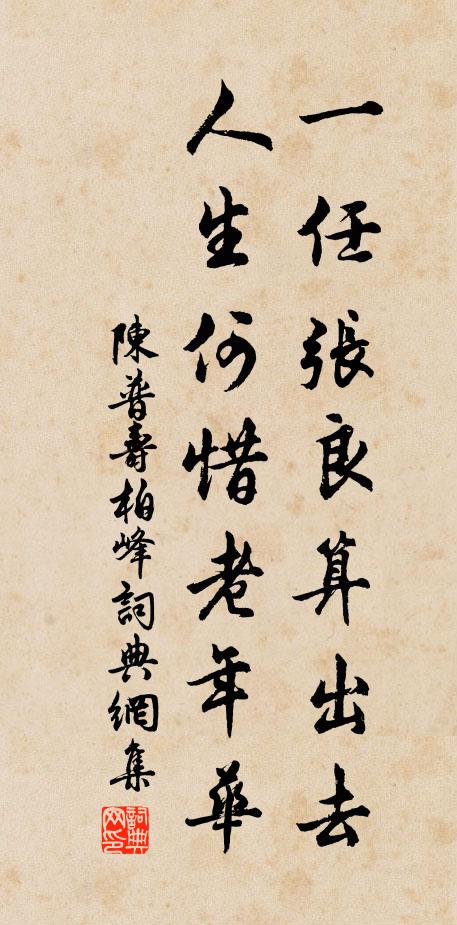 一任張良算出去
人生何惜老年華
陳普壽柏峰詞典網集
詞典
网印